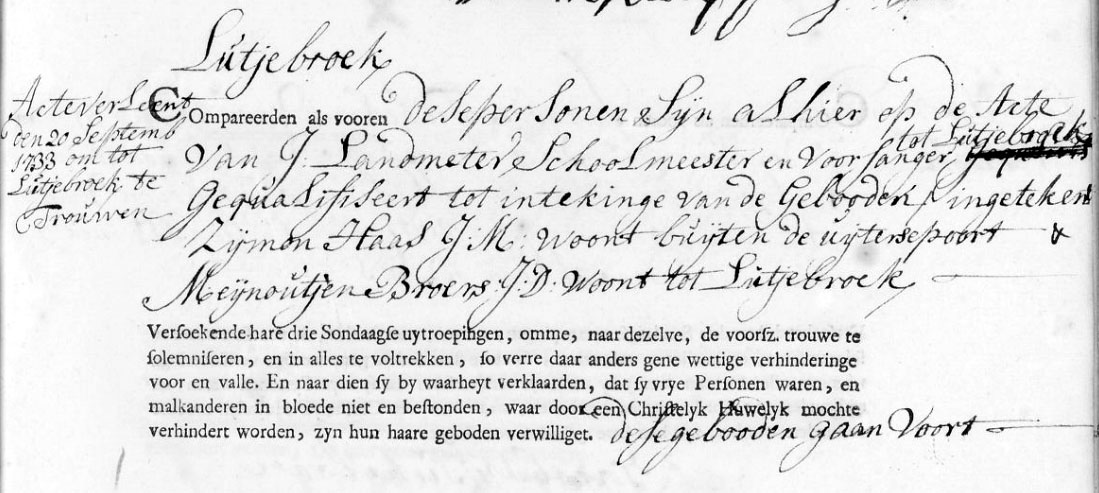 Lutjebroek
Acte verLeent
den 20 Septemb
1733 om tot
Lutjebroek te
Trouwen
COmpareerden als vooren dese personen Syn alhier op de Acte
tot Lutjebroek
van J: Landmeter Schoolmeester en voorsanger,
Gequalifiseert tot intekinge van de Gebooden / ingeteken
Zijmon Haas J:M: woont buijten de uijtersepoort &
Meijnoutjen Broers J:D: woont tot Lutjebroek
Versoekende hare drie Sondaagse uytroepingen, omme, naar dezelve, de voorsz. trouwe te
solemniseren, en in alles te voltrekken, so verre daar anders gene wettige verhinderinge
voor en valle. En naar dien sy by waarheyt verklaarden, dat sy vrye Personen waren, en
malkanderen in bloede niet en bestonden, waar door een Christelyk Huwelyk mochte
verhindert worden, zyn hun haare geboden verwilliget. dese gebooden gaan voort